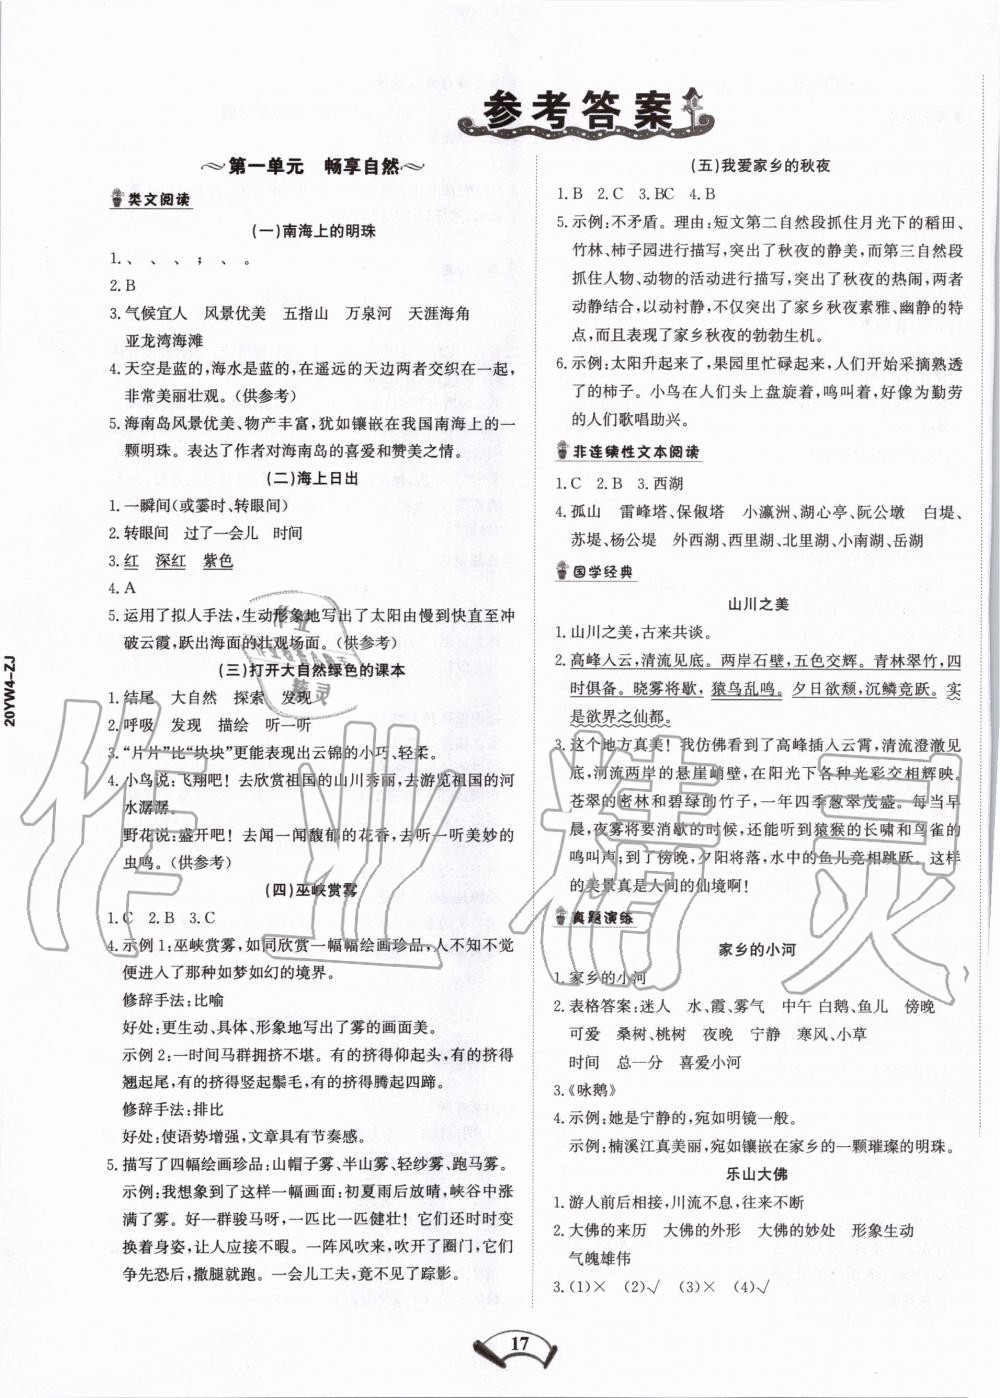 参考答案
第一单元 畅享自然
类文阅读
(一)南海上的明珠
1.、 、 、 ; 、 。
2.B
3.气候宜人 风景优美 五指山 万泉河 天涯海角
亚龙湾海滩
4.天空是蓝的,海水是蓝的,在遥远的天边两者交织在一起,
非常美丽壮观。(供参考)
5.海南岛风景优美、物产丰富,犹如镶嵌在我国南海上的一
颗明珠。表达了作者对海南岛的喜爱和赞美之情。
(二)海上日出
1.一瞬间(或霎时、转眼间)
2.转眼间 过了一会儿 时间
3.红 深红 紫色
4.A
5.运用了拟人手法,生动形象地写出了太阳由慢到快直至冲
破云霞,跃出海面的壮观场面。(供参考)
(三)打开大自然绿色的课本
1.结尾 大自然 探索 发现
2.呼吸 发现 描绘 听一听
3.“片片”比“块块”更能表现出云锦的小巧、轻柔。
4.小鸟说:飞翔吧！去欣赏祖国的山川秀丽,去游览祖国的河
水潺潺。
野花说:盛开吧！去闻一闻馥郁的花香,去听一听美妙的
虫鸣。(供参考)
(四)巫峡赏雾
1.C 2.B 3.C
4.示例1:巫峡赏雾,如同欣赏一幅幅绘画珍品,人不知不觉
便进入了那种如梦如幻的境界。
修辞手法:比喻
好处:更生动、具体、形象地写出了雾的画面美。
示例2:一时间马群拥挤不堪。有的挤得仰起头,有的挤得
翘起尾,有的挤得竖起鬃毛,有的挤得腾起四蹄。
修辞手法:排比
好处:使语势增强,文章具有节奏感。
5.描写了四幅绘画珍品:山帽子雾、半山雾、轻纱雾、跑马雾。
示例:我想象到了这样一幅画面:初夏雨后放晴,峡谷中涨
满了雾。好一群骏马呀,一匹比一匹健壮！它们还时时变
换着身姿,让人应接不暇。一阵风吹来,吹开了圈门,它们
争先恐后,撒腿就跑。一会儿工夫,竟不见了踪影。
(五)我爱家乡的秋夜
1.B 2.C 3.BC 4.B
5.示例:不矛盾。理由:短文第二自然段抓住月光下的稻田、
竹林、柿子园进行描写,突出了秋夜的静美,而第三自然段
抓住人物、动物的活动进行描写,突出了秋夜的热闹,两者
动静结合,以动衬静,不仅突出了家乡秋夜素雅、幽静的特
点,而且表现了家乡秋夜的勃勃生机。
6.示例:太阳升起来了,果园里忙碌起来,人们开始采摘熟透
了的柿子。小鸟在人们头上盘旋着,鸣叫着,好像为勤劳
的人们歌唱助兴。
非连续性文本阅读
1.C 2.B 3.西湖
4.孤山 雷峰塔、保俶塔 小瀛洲、湖心亭、阮公墩 白堤、
苏堤、杨公堤 外西湖、西里湖、北里湖、小南湖、岳湖
国学经典
山川之美
1.山川之美,古来共谈。
2.高峰入云,清流见底。两岸石壁,五色交辉。青林翠竹,四
时俱备。晓雾将歇,猿鸟乱鸣。夕日欲颓,沉鳞竞跃。实
是欲界之仙都。
3.这个地方真美！我仿佛看到了高峰插入云霄,清流澄澈见
底,河流两岸的悬崖峭壁,在阳光下各种光彩交相辉映。
苍翠的密林和碧绿的竹子,一年四季葱翠茂盛。每当早
晨,薄雾将要消歇的时候,还能听到猿猴的长啸和鸟雀的
鸣叫声;到了傍晚,夕阳将落,水中的鱼儿竞相跳跃。这样
的美景真是人间的仙境啊！
真题演练
家乡的小河
1.家乡的小河
2.表格答案:迷人 水、霞、雾气 中午 白鹅、鱼儿 傍晚
可爱 桑树、桃树 夜晚 宁静 寒风、小草
时间 总—分 喜爱小河
3.《咏鹅》
4.示例:她是宁静的,宛如明镜一般。
示例:楠溪江真美丽,宛如镶嵌在家乡的一颗璀璨的明珠。
乐山大佛
1.游人前后相接,川流不息,往来不断
2.大佛的来历 大佛的外形 大佛的妙处 形象生动
气魄雄伟
3.(1)× (2)√ (3)× (4)√
17
20YW4-ZJ
作业精灵
作业
精灵